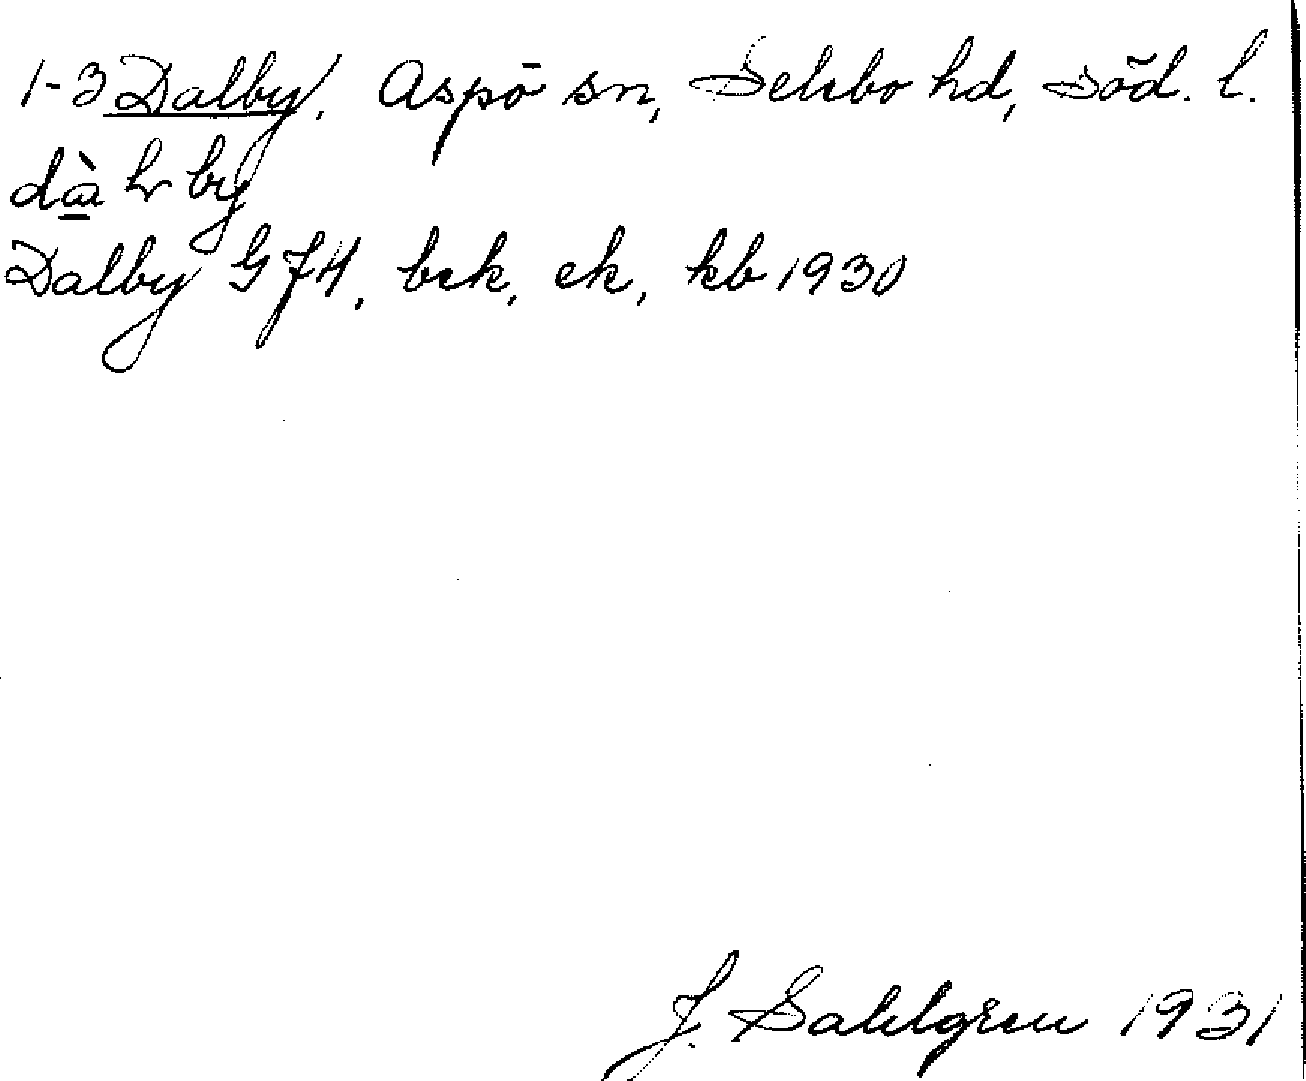 1-3 Dalby, Aspö sn, Selebo hd, Söd. l.
by
Dalby GJH, bek, ek, kb 1930
J. Sahlgren 1931